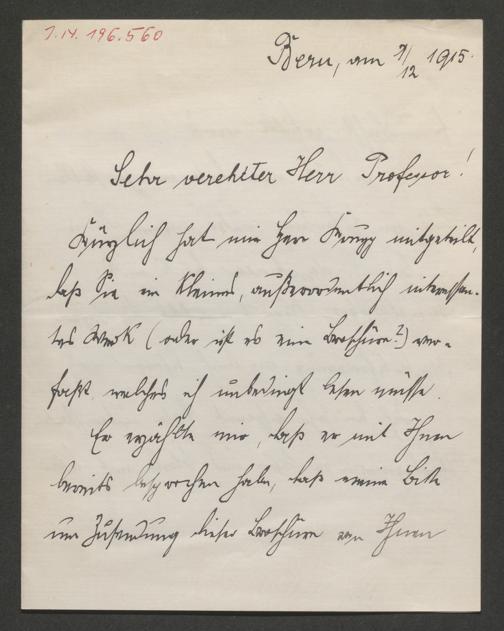 I.N. 196.560
Bern, am 9/12 1915.
Sehr verehrter Herr Professor!
Kürzlich hat mir Herr Krupp mitgeteilt,
daß Sie ein kleines, außerordentlich interessan-
tes Werk (oder ist es eine Broschüre?) ver-
faßt, welches ich unbedingt lesen müsse.
Er erzählte mir, daß er mit Ihnen
bereits besprochen habe, daß meine Bitte
um Zusendung dieser Broschüre an Ihnen